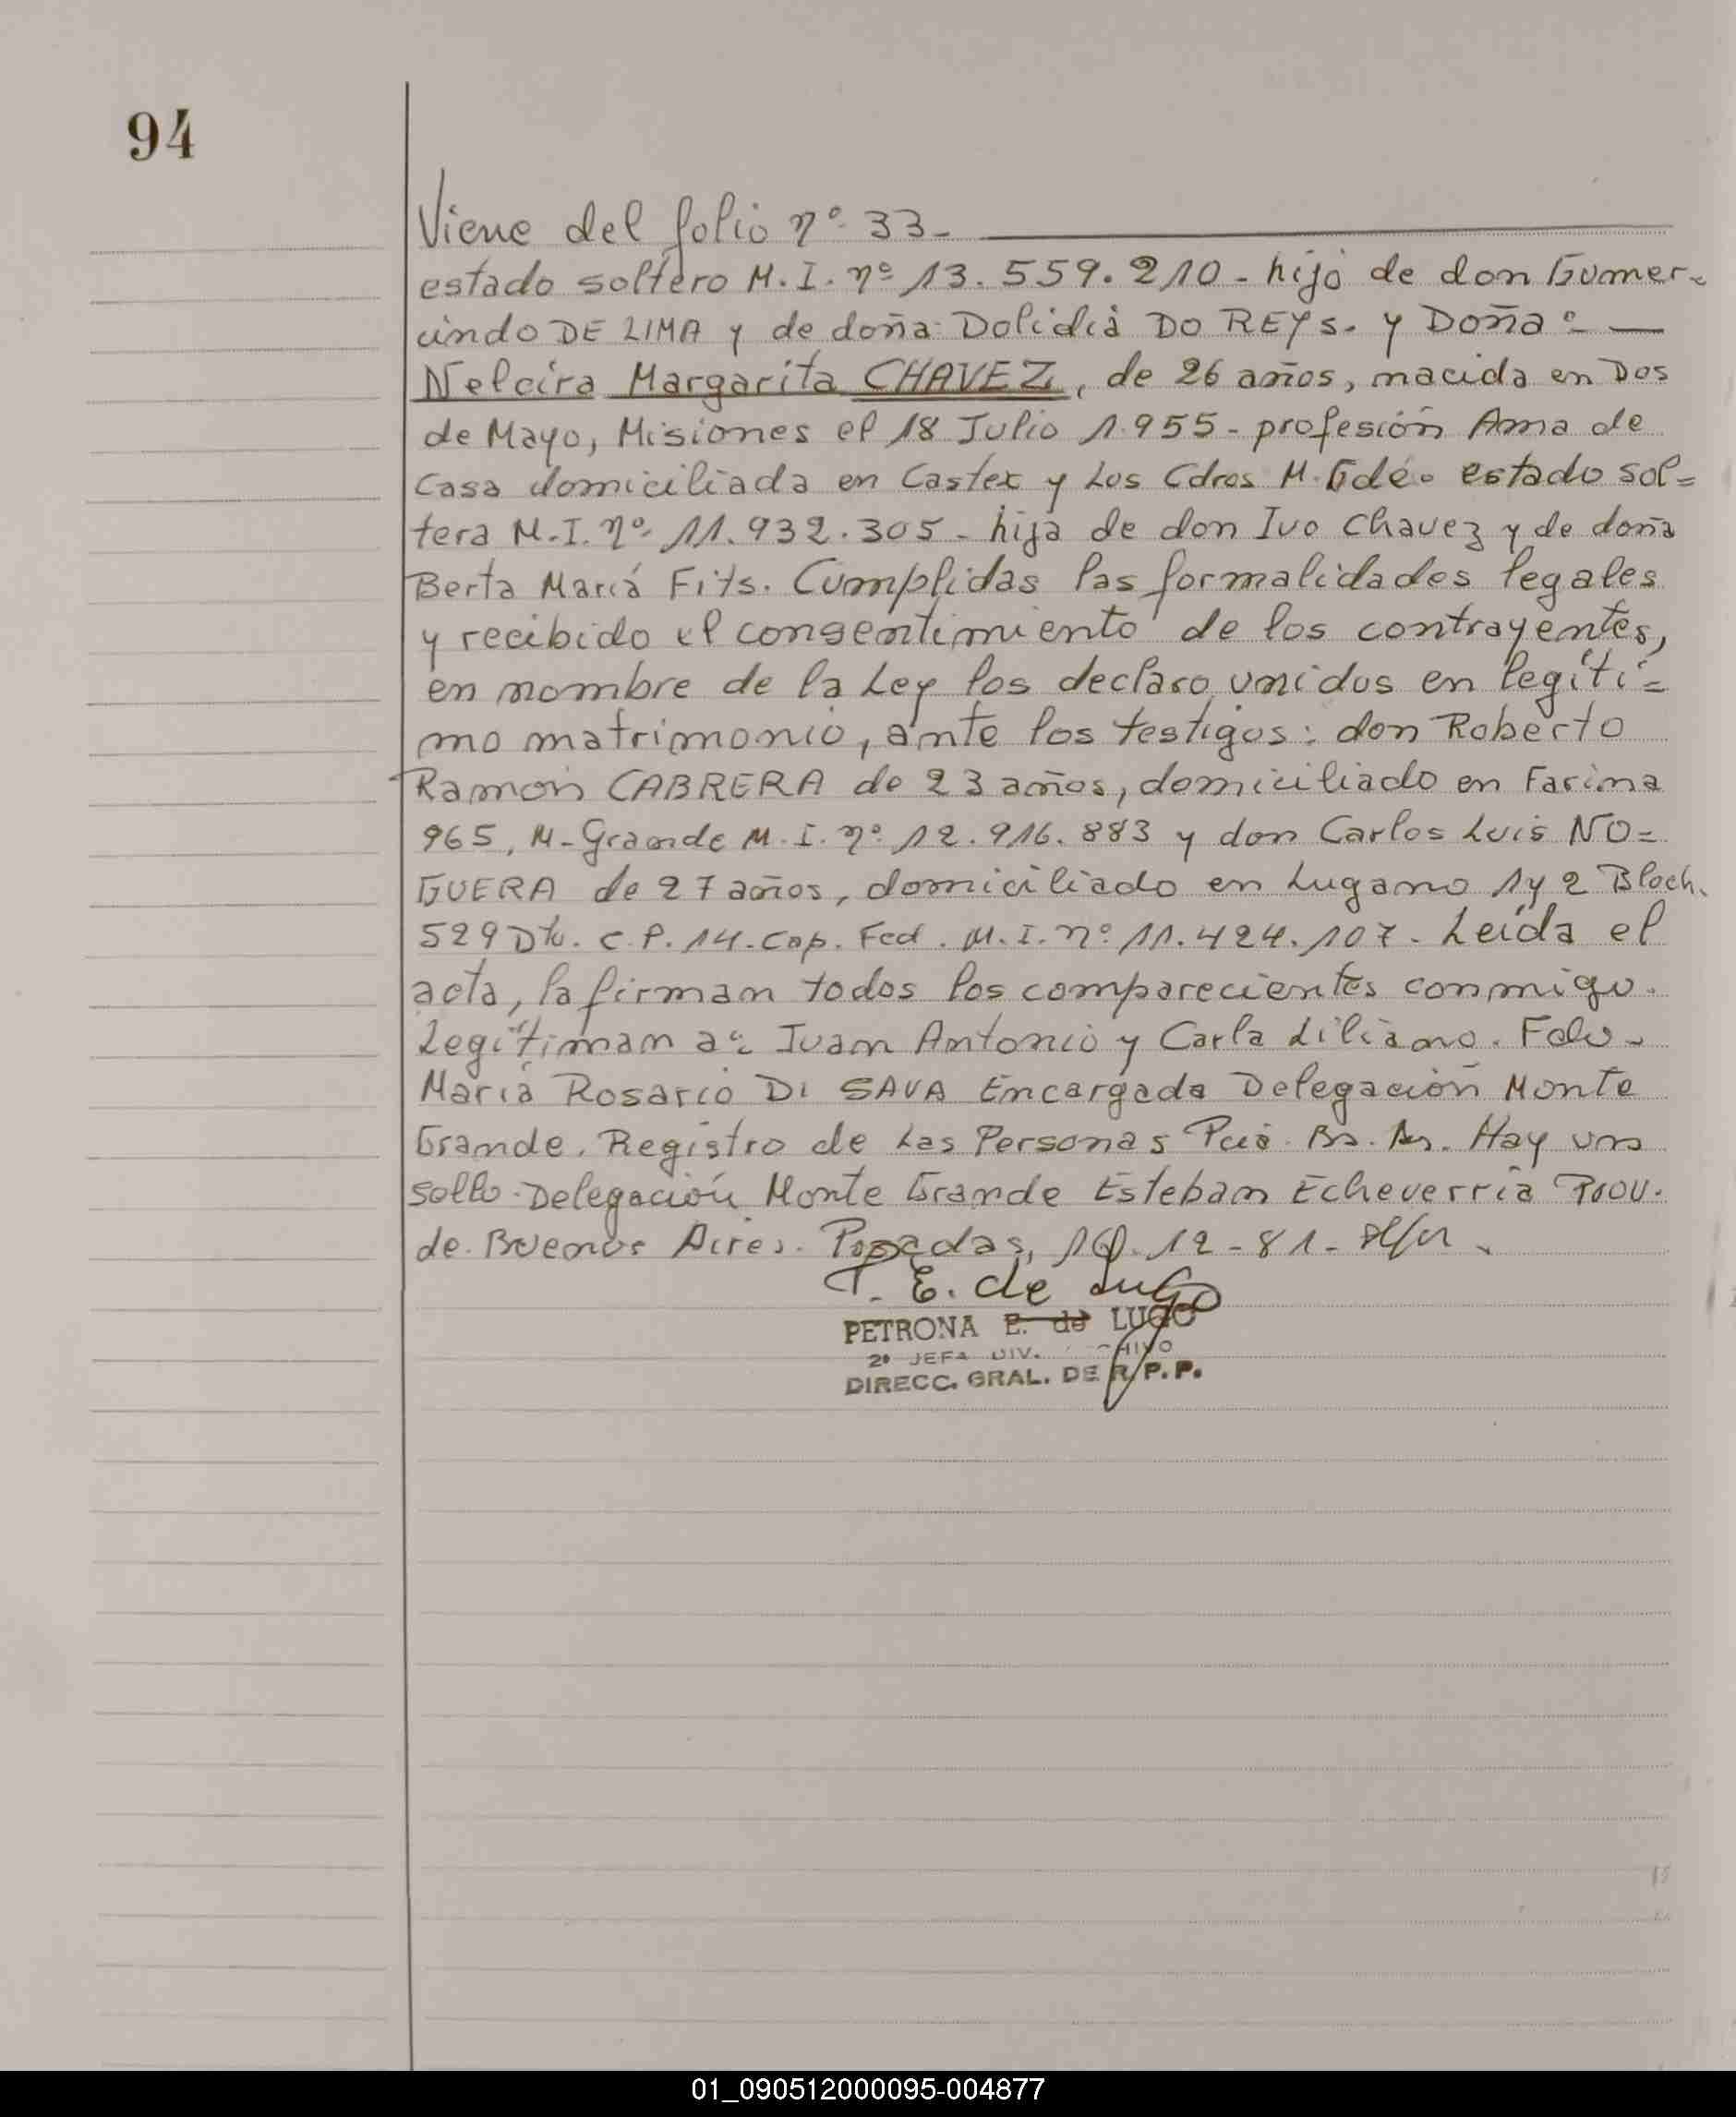 94
Viene del folio nº 33-
estado soltero M.I. nº 13.559.210 - hijo de don Gumer-
cindo DE LIMA y de doña Dolidia DO REYS. y Doña: —
Nelcira Margarita CHAVEZ, de 26 años, nacida en Dos
de Mayo, Misiones el 18 Julio 1.955 - profesión Ama de
Casa domiciliada en Castex y Los Cdros M. Gde. estado sol=
tera M.I. nº 11.932.305 - hija de don Ivo Chavez y de doña
Berta María Fits. Cumplidas las formalidades legales
y recibido el consentimiento de los contrayentes,
en nombre de la Ley los declaro unidos en legíti=
mo matrimonio, ante los testigos: don Roberto
Ramón CABRERA de 23 años, domiciliado en Farina
965, M-Grande M.I. nº 12.916.883 y don Carlos Luis NO=
GUERA de 27 años, domiciliado en Lugano 1 y 2 Bloch.
529 Dto. C. P. 14. Cap. Fed. M.I. nº 11.424.107 - Leída el
acta, la firman todos los comparecientes conmigo.
Legítiman a: Juan Antonio y Carla Liliana. Fdo.
María Rosario DI SAVA Encargada Delegación Monte
Grande. Registro de Las Personas Pcia. Bs. As. Hay un
sello - Delegación Monte Grande Esteban Echeverría Prov.
de Buenos Aires. Posadas, 12-81-
P. E. de Lugo
PETRONA E. de LUGO
2º JEFA DIV.
DIRECC. GRAL. DE R.P.P.
01_090512000095-004877